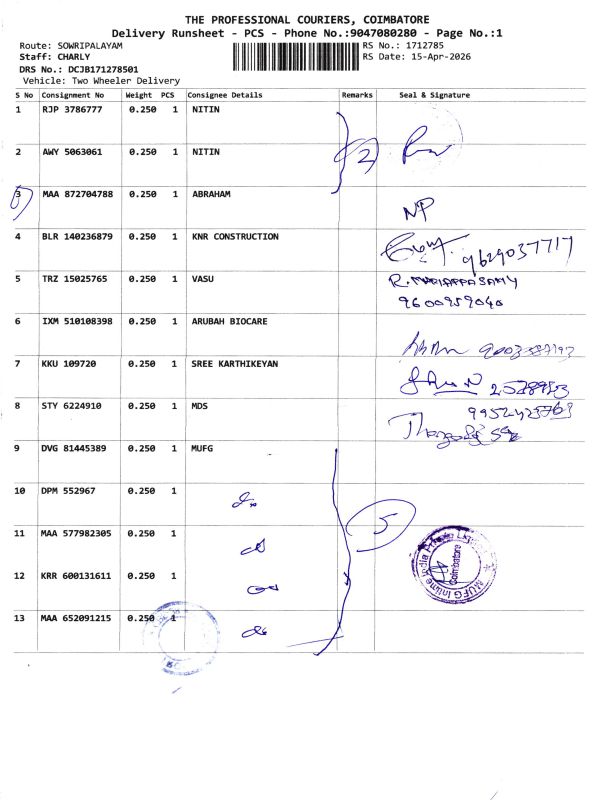 THE PROFESSIONAL COURIERS, COIMBATORE
Delivery Runsheet - PCS - Phone No.:9047080280 - Page No.:1
Route: SOWRIPALAYAM RS No.: 1712785
Staff: CHARLY RS Date: 15-Apr-2026
DRS No.: DCJB171278501
Vehicle: Two Wheeler Delivery
S No Consignment No Weight PCS Consignee Details Remarks Seal & Signature
1 RJP 3786777 0.250 1 NITIN
2 AWY 5063061 0.250 1 NITIN 2
3 MAA 872704788 0.250 1 ABRAHAM NP
4 BLR 140236879 0.250 1 KNR CONSTRUCTION 9629037717
5 TRZ 15025765 0.250 1 VASU R. MARIAPPASAMY
9600959040
6 IXM 510108398 0.250 1 ARUBAH BIOCARE
7 KKU 109720 0.250 1 SREE KARTHIKEYAN
8 STY 6224910 0.250 1 MDS
9 DVG 81445389 0.250 1 MUFG
10 DPM 552967 0.250 1
11 MAA 577982305 0.250 1 5
12 KRR 600131611 0.250 1
13 MAA 652091215 0.250 1
MUFG Intime India Private Limited
Coimbatore